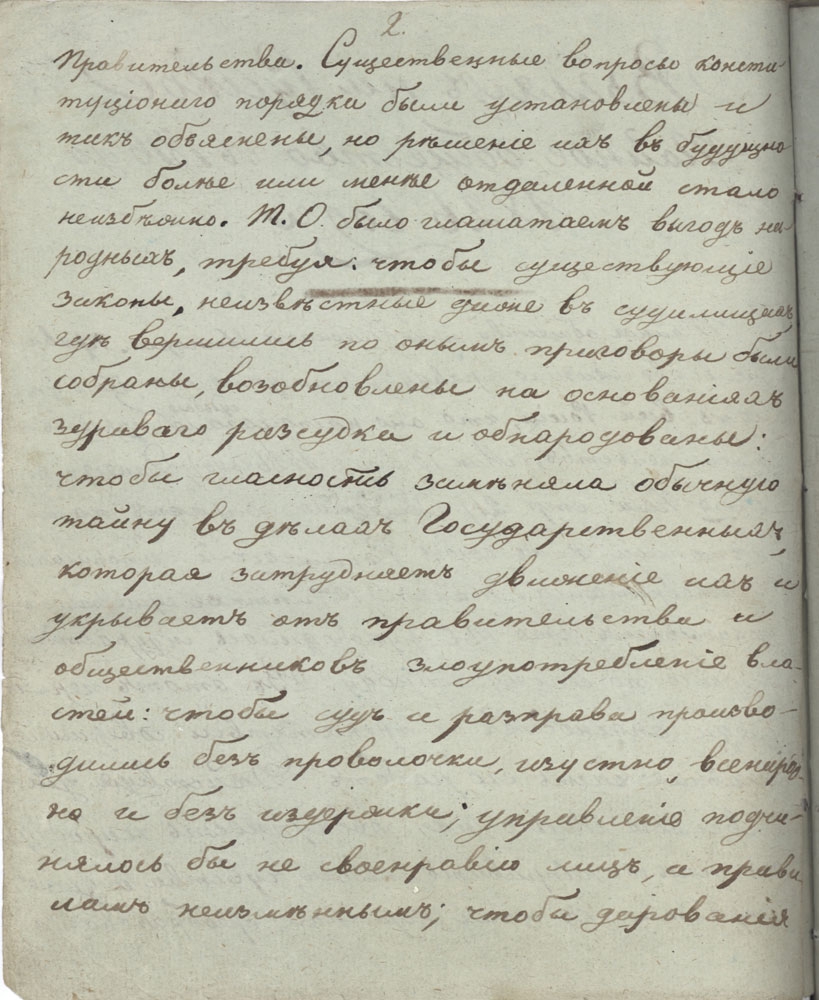 2.
Правительства. Существенные вопросы консти-
туціоннаго порядка были установлены и
такъ объяснены, но рѣшеніе ихъ въ будущно
сти болѣе или менѣе отдаленной стало
неизбѣжно. Т. О. было глашатаемъ выгодъ на-
родныхъ, требуя: чтобы существующіе
законы, неизвѣстные даже въ судилищахъ,
гдѣ вершились по онымъ приговоры были
собраны, возобновлены на основаніяхъ
здраваго разсудка и обнародованы:
чтобы гласность замѣняла обычную
тайну въ дѣлахъ Государственныхъ,
которая затрудняетъ движеніе ихъ и
укрываетъ отъ правительства и
общественниковъ злоупотребленіе вла-
стей: чтобы судъ и разправа произво-
дились безъ проволочки, изустно, всенарод-
но и безъ издержки; управленіе подчи-
нялось бы не своенравію лицъ, а прави-
ламъ неизмѣннымъ; чтобы дарованія